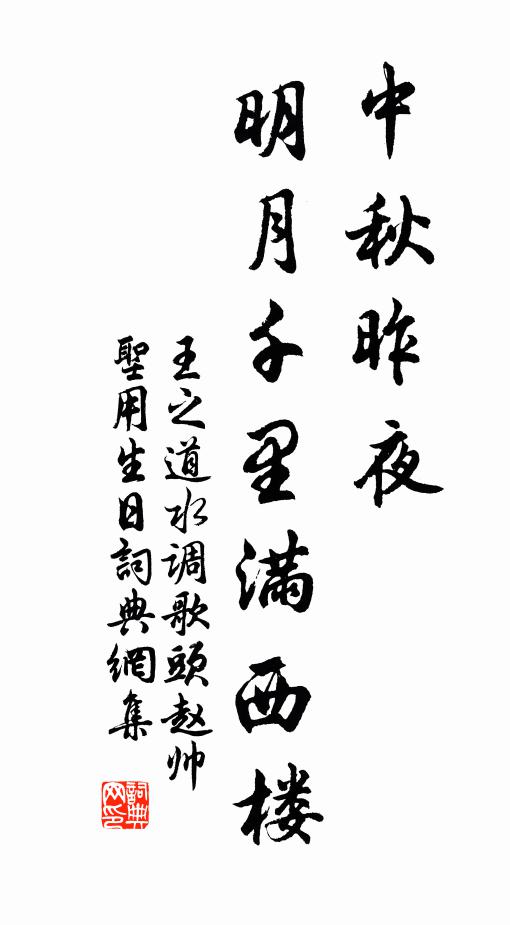 中秋昨夜
明月千里满西楼
王之道水调歌頭赵帅
聖用生日詞典網集
詞典网印